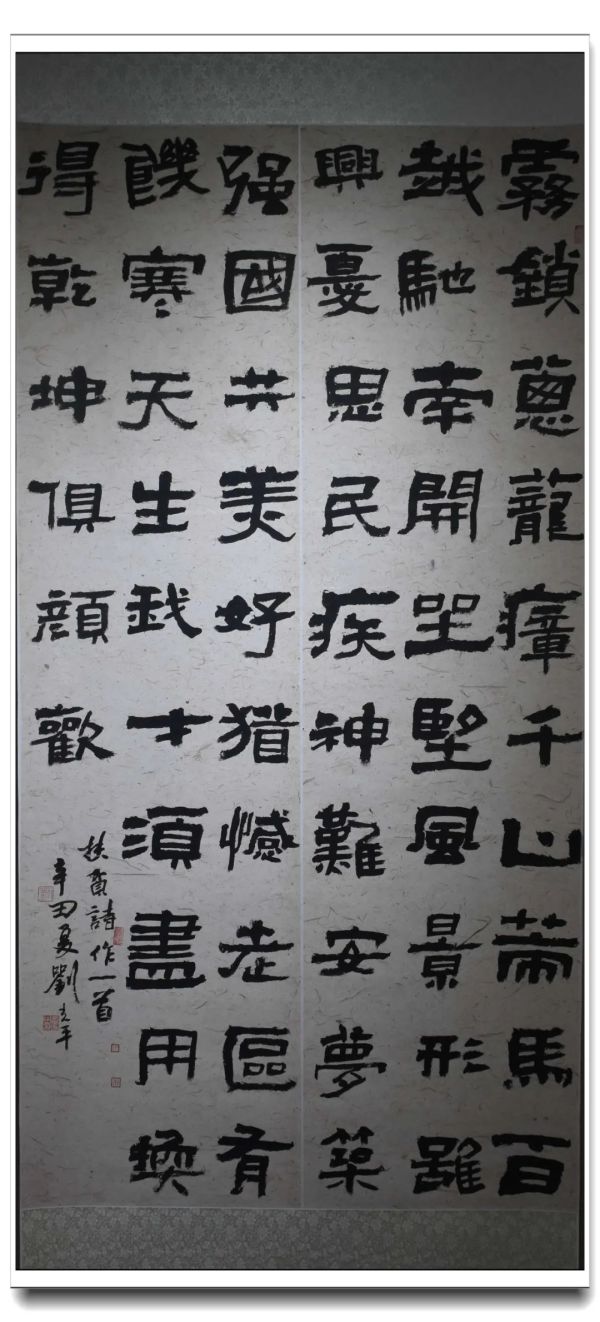 霧鎖蔥龍瘴千山策馬百
越馳南開坐望風景形雖
興憂思民疾神難安夢築
强國共美好猶憾老區有
饑寒天生我才須盡用換
得乾坤俱顔歡
扶貧詩作一首
辛丑夏劉光平